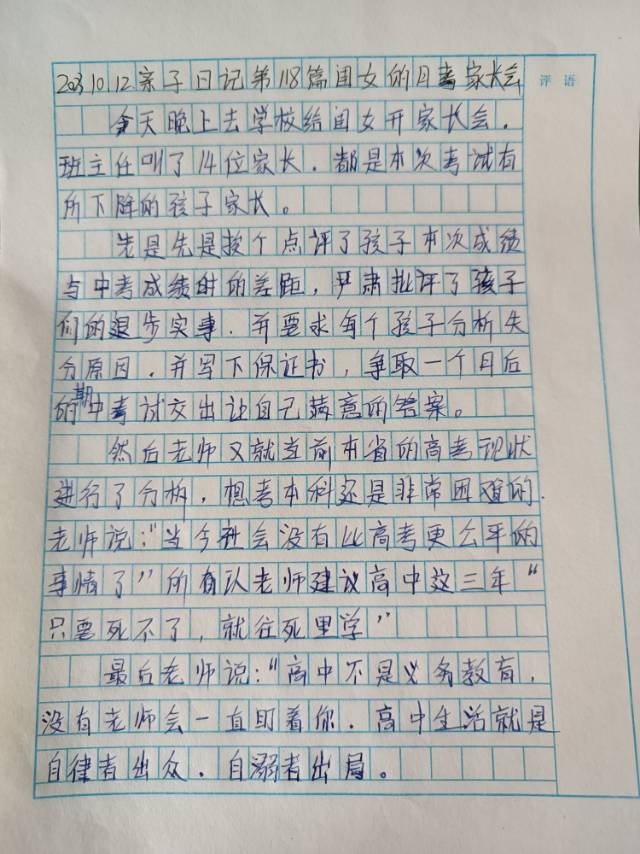 2023.10.12亲子日记第118篇闺女的月考家长会
评语
今天晚上去学校给闺女开家长会.
班主任叫了14位家长.都是本次考试有
所下降的孩子家长。
先是先是挨个点评了孩子本次成绩
与中考成绩时的差距,严肃批评了孩子
们的退步实事.并要求每个孩子分析失
分原因.并写下保证书,争取一个月后
的期中考试交出让自己满意的答案。
然后老师又就当前本省的高考现状
进行了分析,想考本科还是非常困难的.
老师说:"当今社会没有比高考更公平的
事情了"所有以老师建议高中这三年"
只要死不了,就往死里学"
最后老师说:"高中不是义务教育.
没有老师会一直盯着你.高中生活就是
自律者出众.自溺者出局。